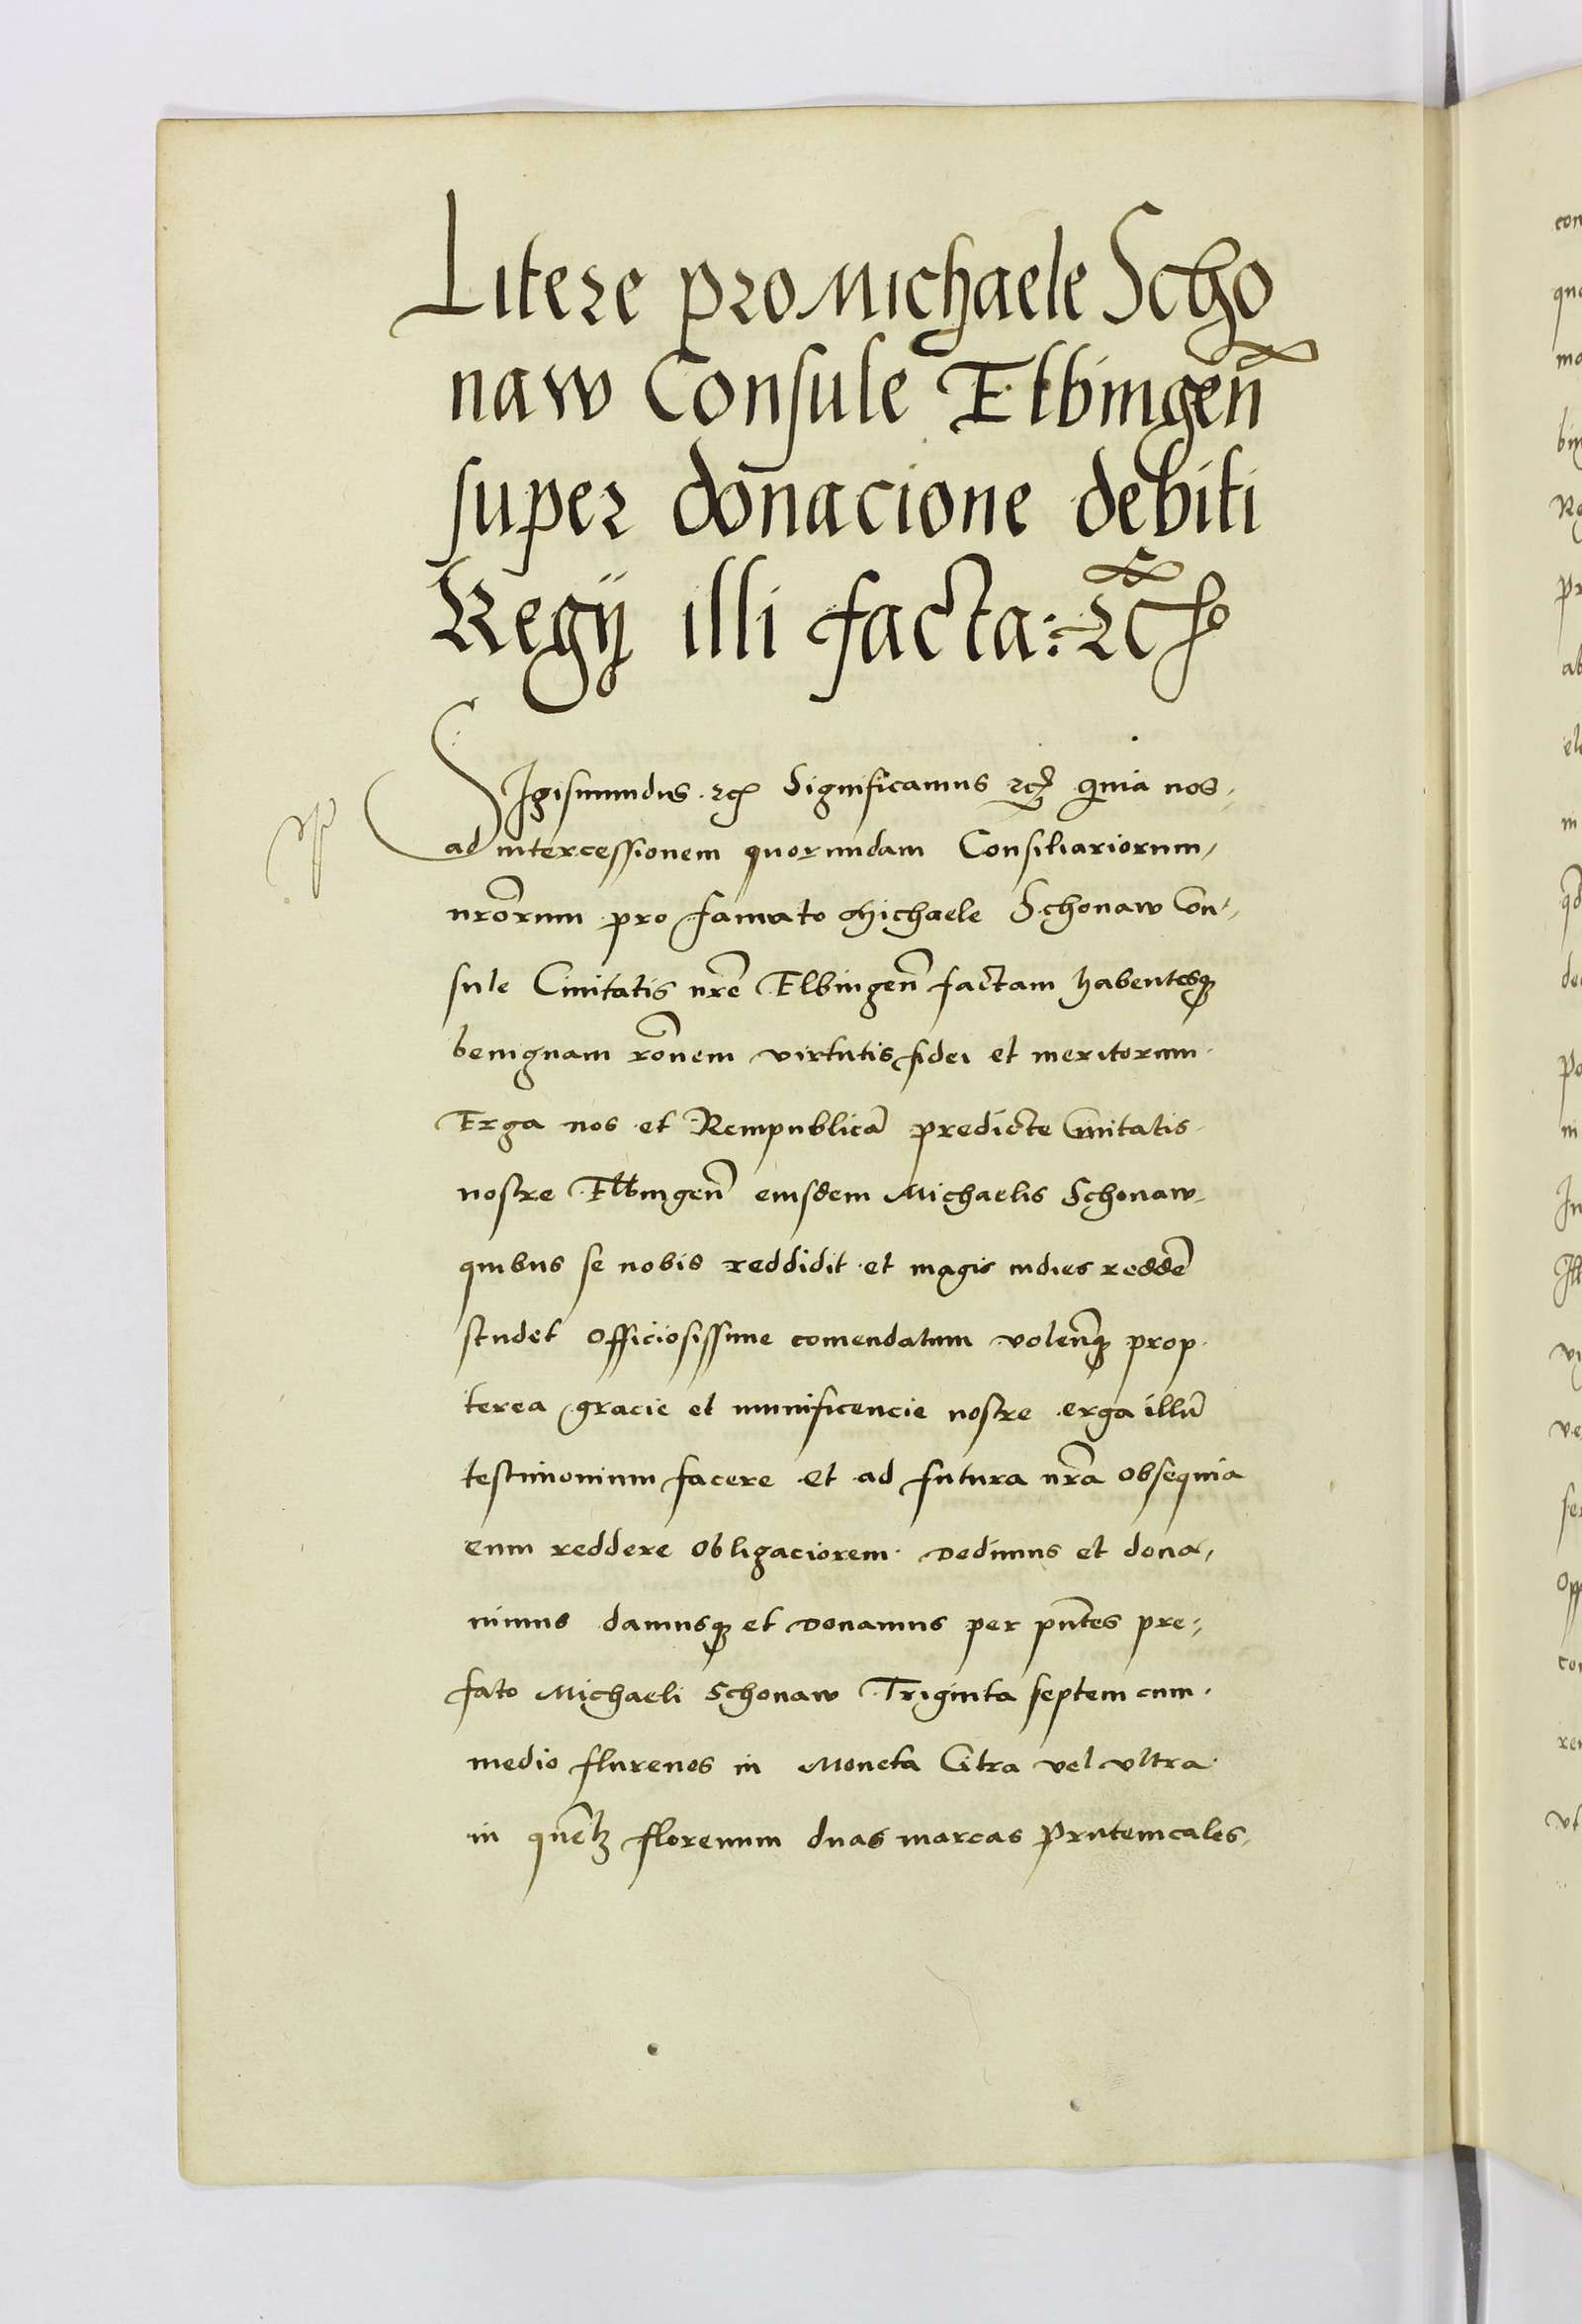 Litere pro Michaele Scho
naw Consule Elbingen̄
super donacione debiti
Regÿ illi facta: ꝛc̃
SIgismundus ꝛc Significamus ꝛc Quia nos
ad intercessionem quorundam Consiliariorum
nr̃orum pro famato Michaele Schonaw Con
sule Ciuitatis nr̃e Elbingen̄ factam habentesqꝫ
benignam rõnem virtutis fidei et meritorum
Erga nos et Rempublicã predicte Ciuitatis
nostre Elbingen̄ eiusdem Michaelis Schonaw
quibus se nobis reddidit et magis indies reddẽ
studet officiosissime comendatum volen̄qꝫ prop
terea gracie et munificencie nostre erga illũ
testimonium facere et ad futura nr̃a obsequia
eum reddere obligaciorem Dedimus et dona
uimus damusqꝫ et Donamus per pñtes pre
fato Michaeli Schonaw Triginta septem cum
medio flurenos in Moneta Citra vel vltra
in quẽlꝫ florenum duas marcas Prutenicales
con